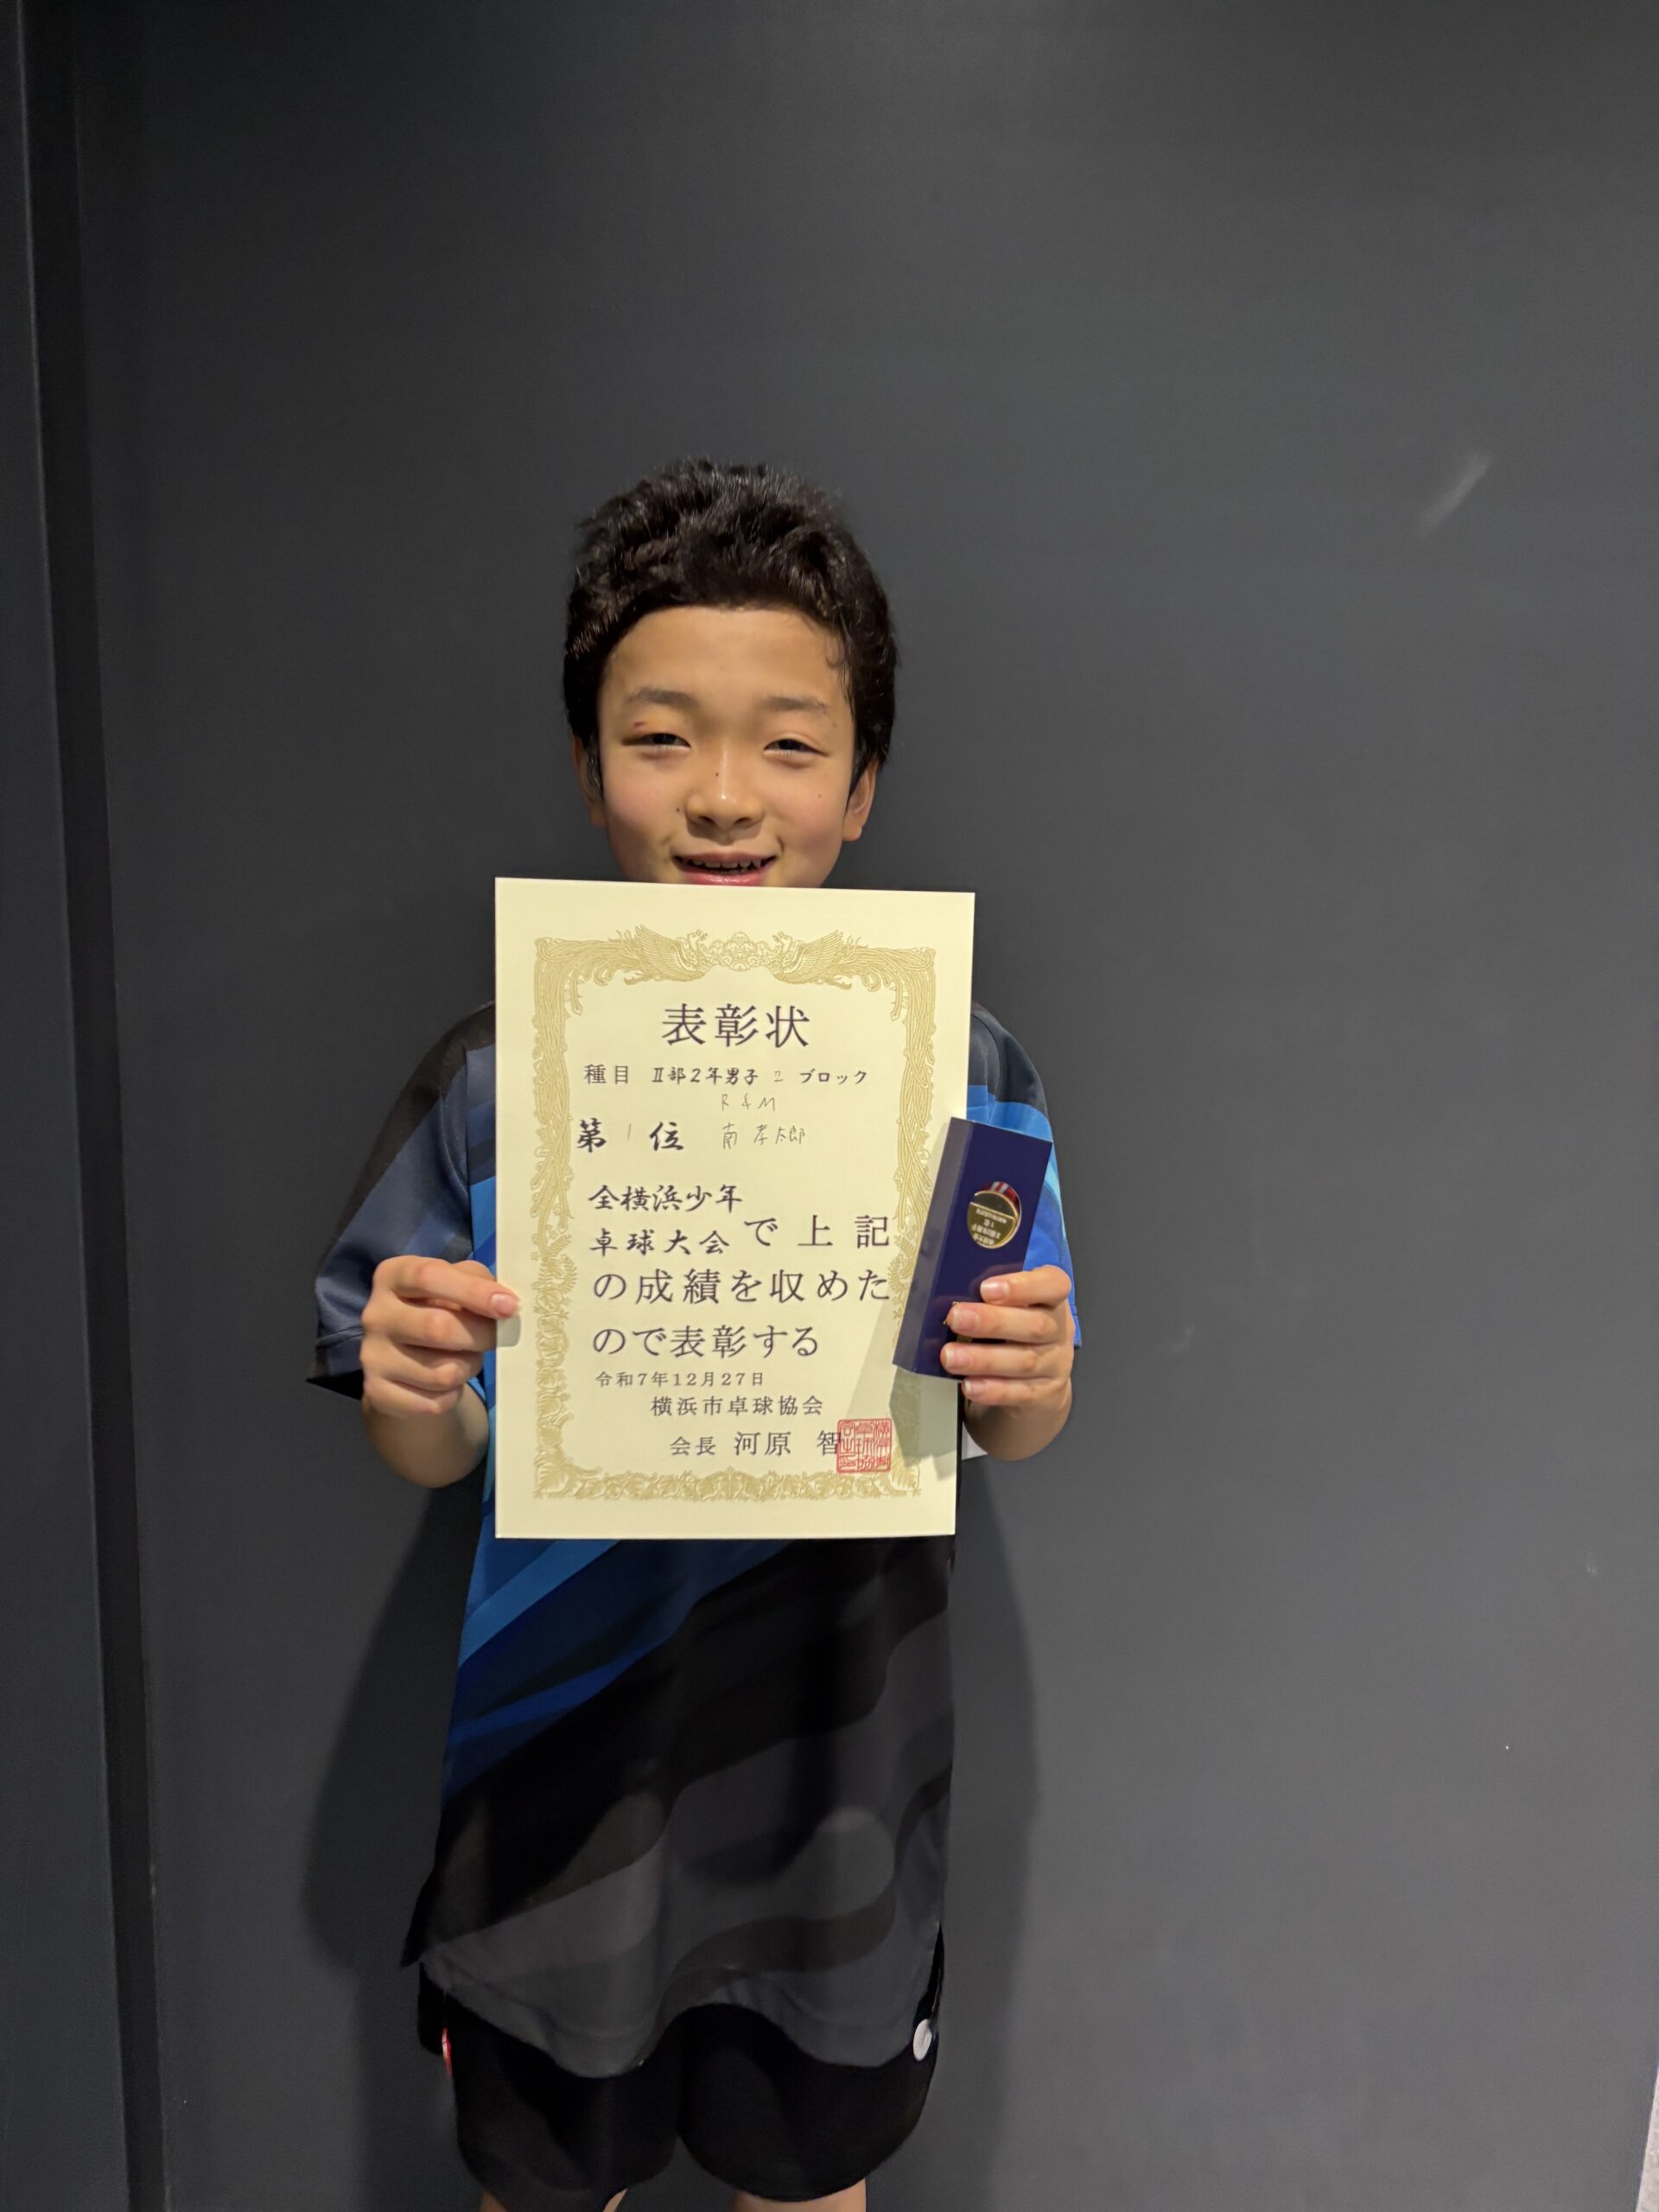 表彰状
種目 Ⅱ部2年男子 2 ブロック
R&M
第 1 位 南 孝太郎
全横浜少年
卓球大会で上記
の成績を収めた
ので表彰する
令和7年12月27日
横浜市卓球協会
会長 河原 智